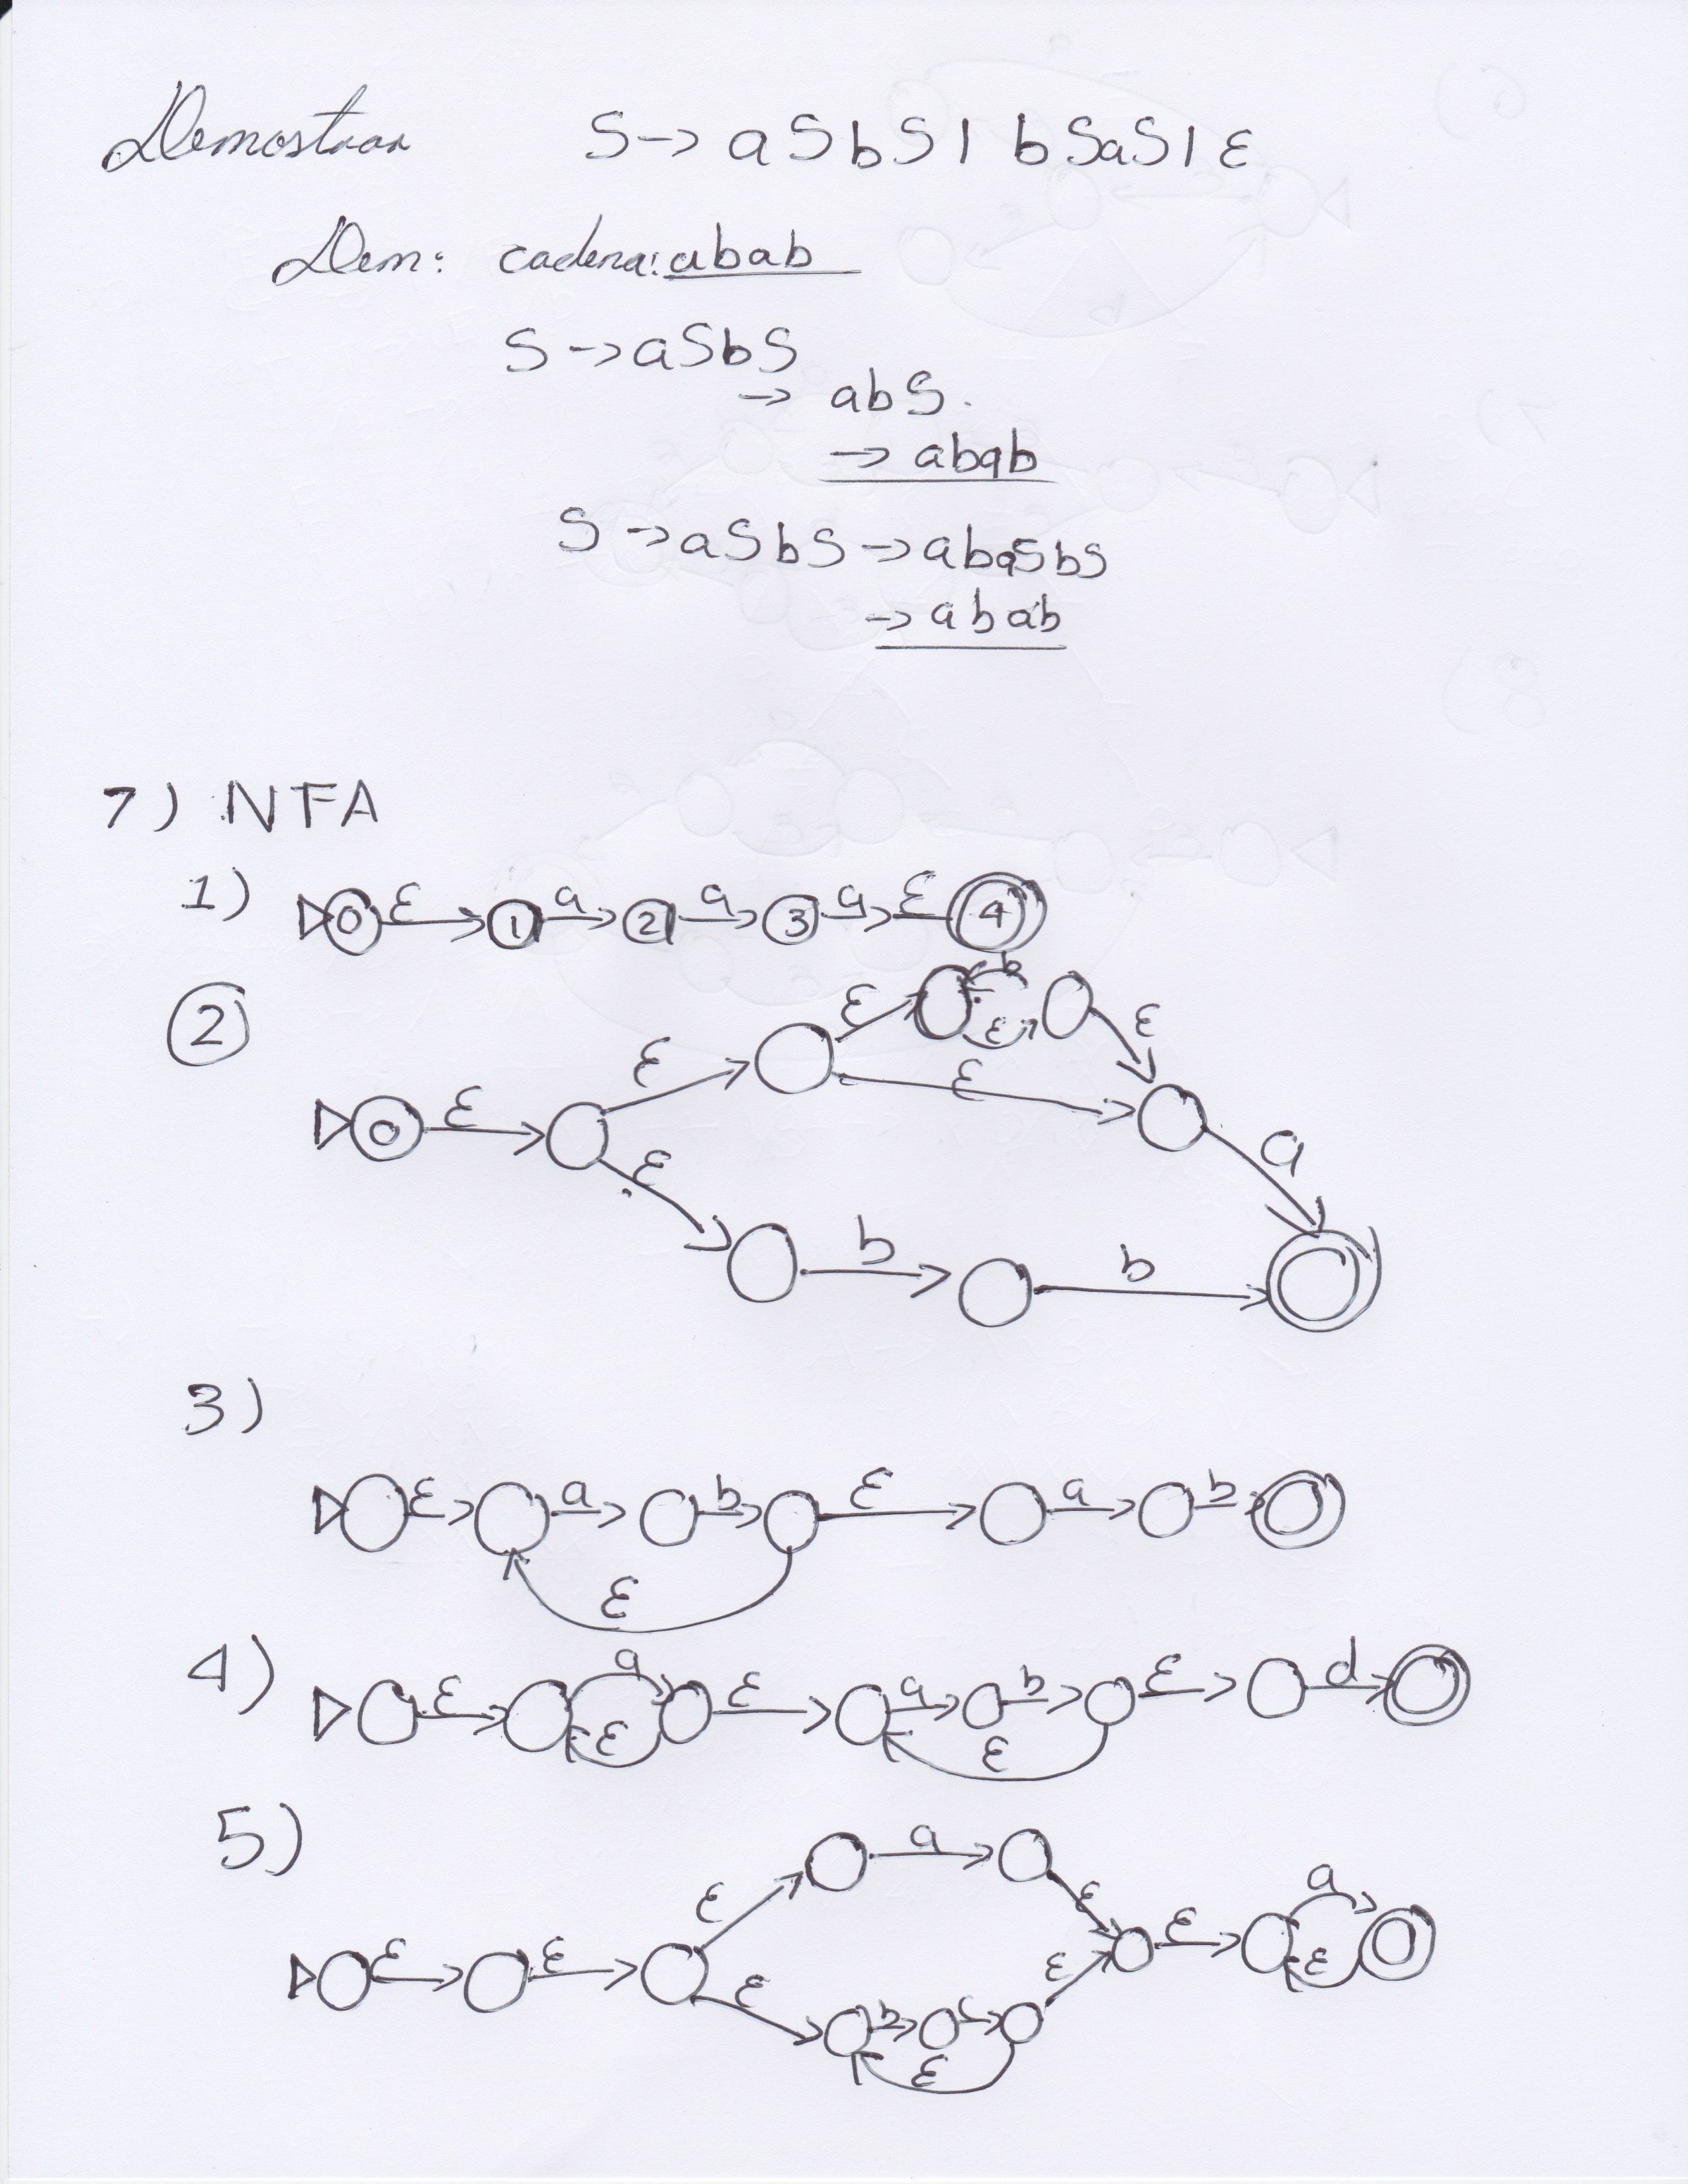 Demostrar S -> aSbS | bSaS | ε
Dem: cadena: abab
S -> aSbS
-> abS.
-> abab
S -> aSbS -> abaSbS
-> abab
7) NFA
1) 0 ε 1 a 2 a 3 a ε 4
2
ε b ε ε
ε ε
0 ε
ε a
b b
3)
ε a b ε a b
ε
4)
ε a ε a b ε d
ε ε
5)
a
ε ε a
ε ε ε ε ε
ε b c
ε